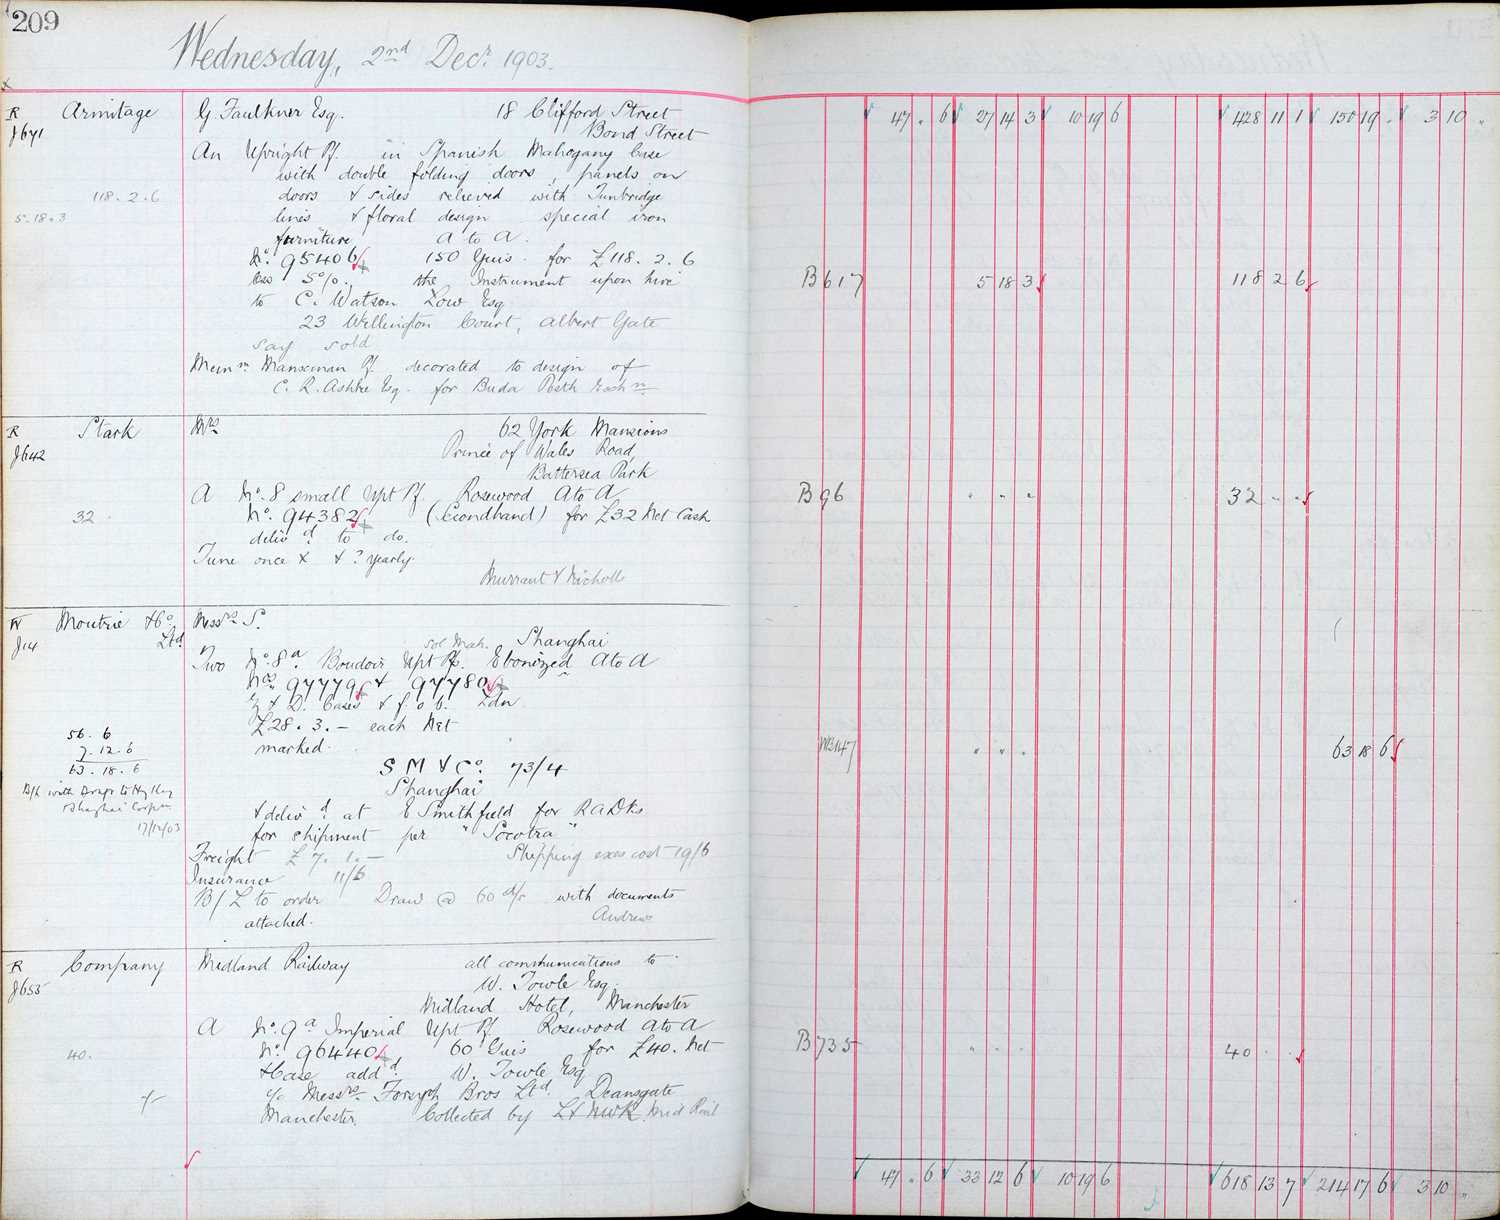 209
Wednesday, 2nd Decr. 1903.
R Armitage G Faulkner Esq. 18 Clifford Street
J671 Bond Street
An Upright Pf. in Spanish Mahogany Case
with double folding doors, panels on
118.2.6 doors & sides relieved with Tunbridge
5.18.3 lines & floral design special iron
furniture A to A.
No. 95406 150 Guis. for £118.2.6
less 5%. the Instrument upon hire
to C. Watson Low Esq
23 Wellington Court, Albert Gate
say sold
Memm. Manxman Pf. decorated to design of
C. R. Ashbee Esq. for Buda Pesth Exhn
R Stark Mrs 62 York Mansions
J642 Prince of Wales Road,
Battersea Park
A No. 8 small Upt Pf. Rosewood A to A
32 No. 94382 (Secondhand) for £32 Net Cash
delivd. to do.
Tune once & & ? yearly.
Murrant & Nicholls
W Moutrie & Co. Ltd. Messrs S.
J14 Shanghai
Sol Mah.
Two No. 8a Boudoir Upt Pfs. Ebonized A to A
Nos. 97779 & 97780
Z & D. Cases & f.o.b. Ldn
56.6 £28.3.– each Net
7.12.6 marked.
63.18.6 S M & Co. 73/4
B/L with Drafts to Hg Kg Shanghai
Shanghai Corpn.
17/12/03
& delivd. at E Smithfield for R A Dks
for shipment per "Socotra"
Freight £7.1.– Shipping exes cost 19/6
Insurance 11/6
B/L to order Draw @ 60 d/s with documents
attached. Andrews
R Company Midland Railway all communications to
J653 W. Towle Esq.
Midland Hotel, Manchester
A No. 9a Imperial Upt Pf Rosewood A to A
40. No. 96440 60 Guis for £40. Net
& Case addd. W. Towle Esq
c/o Messrs Forsyth Bros Ltd. Deansgate
Manchester. Collected by L & NWR. Mid Rail
47 . 6 27 14 3 10 19 6 428 11 1 150 19 . 3 10 .
B617 5 18 3 118 2 6
B96 . . . 32 . .
WB147 . . . 63 18 6
B735 . . . 40 . .
47 . 6 33 12 6 10 19 6 618 13 7 214 17 6 3 10 .